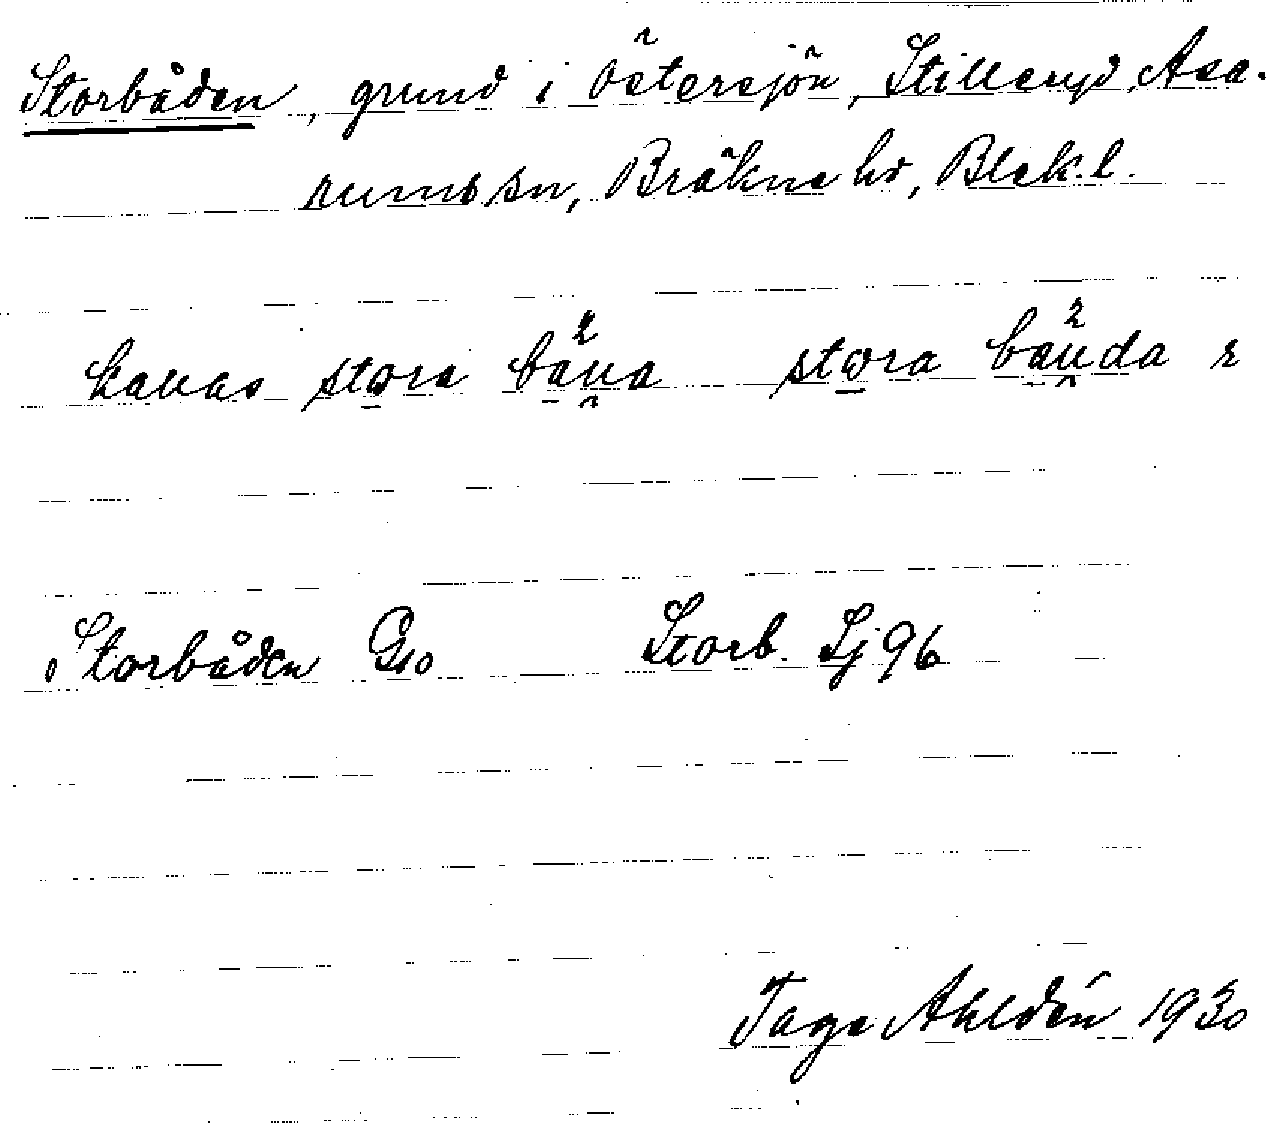 Storbåden, grund i Östersjön, Stilleryd, Asa-
rums sn, Bräkne hd, Blek. l.
kallas stora båna stora bånda
Storbåden Storb. Sj 96
Tage Ahldén 1930